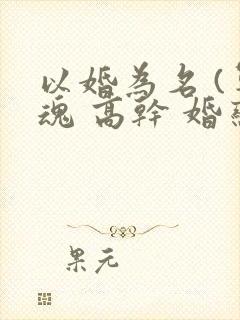 以婚為名(
魂 高幹 婚
果元